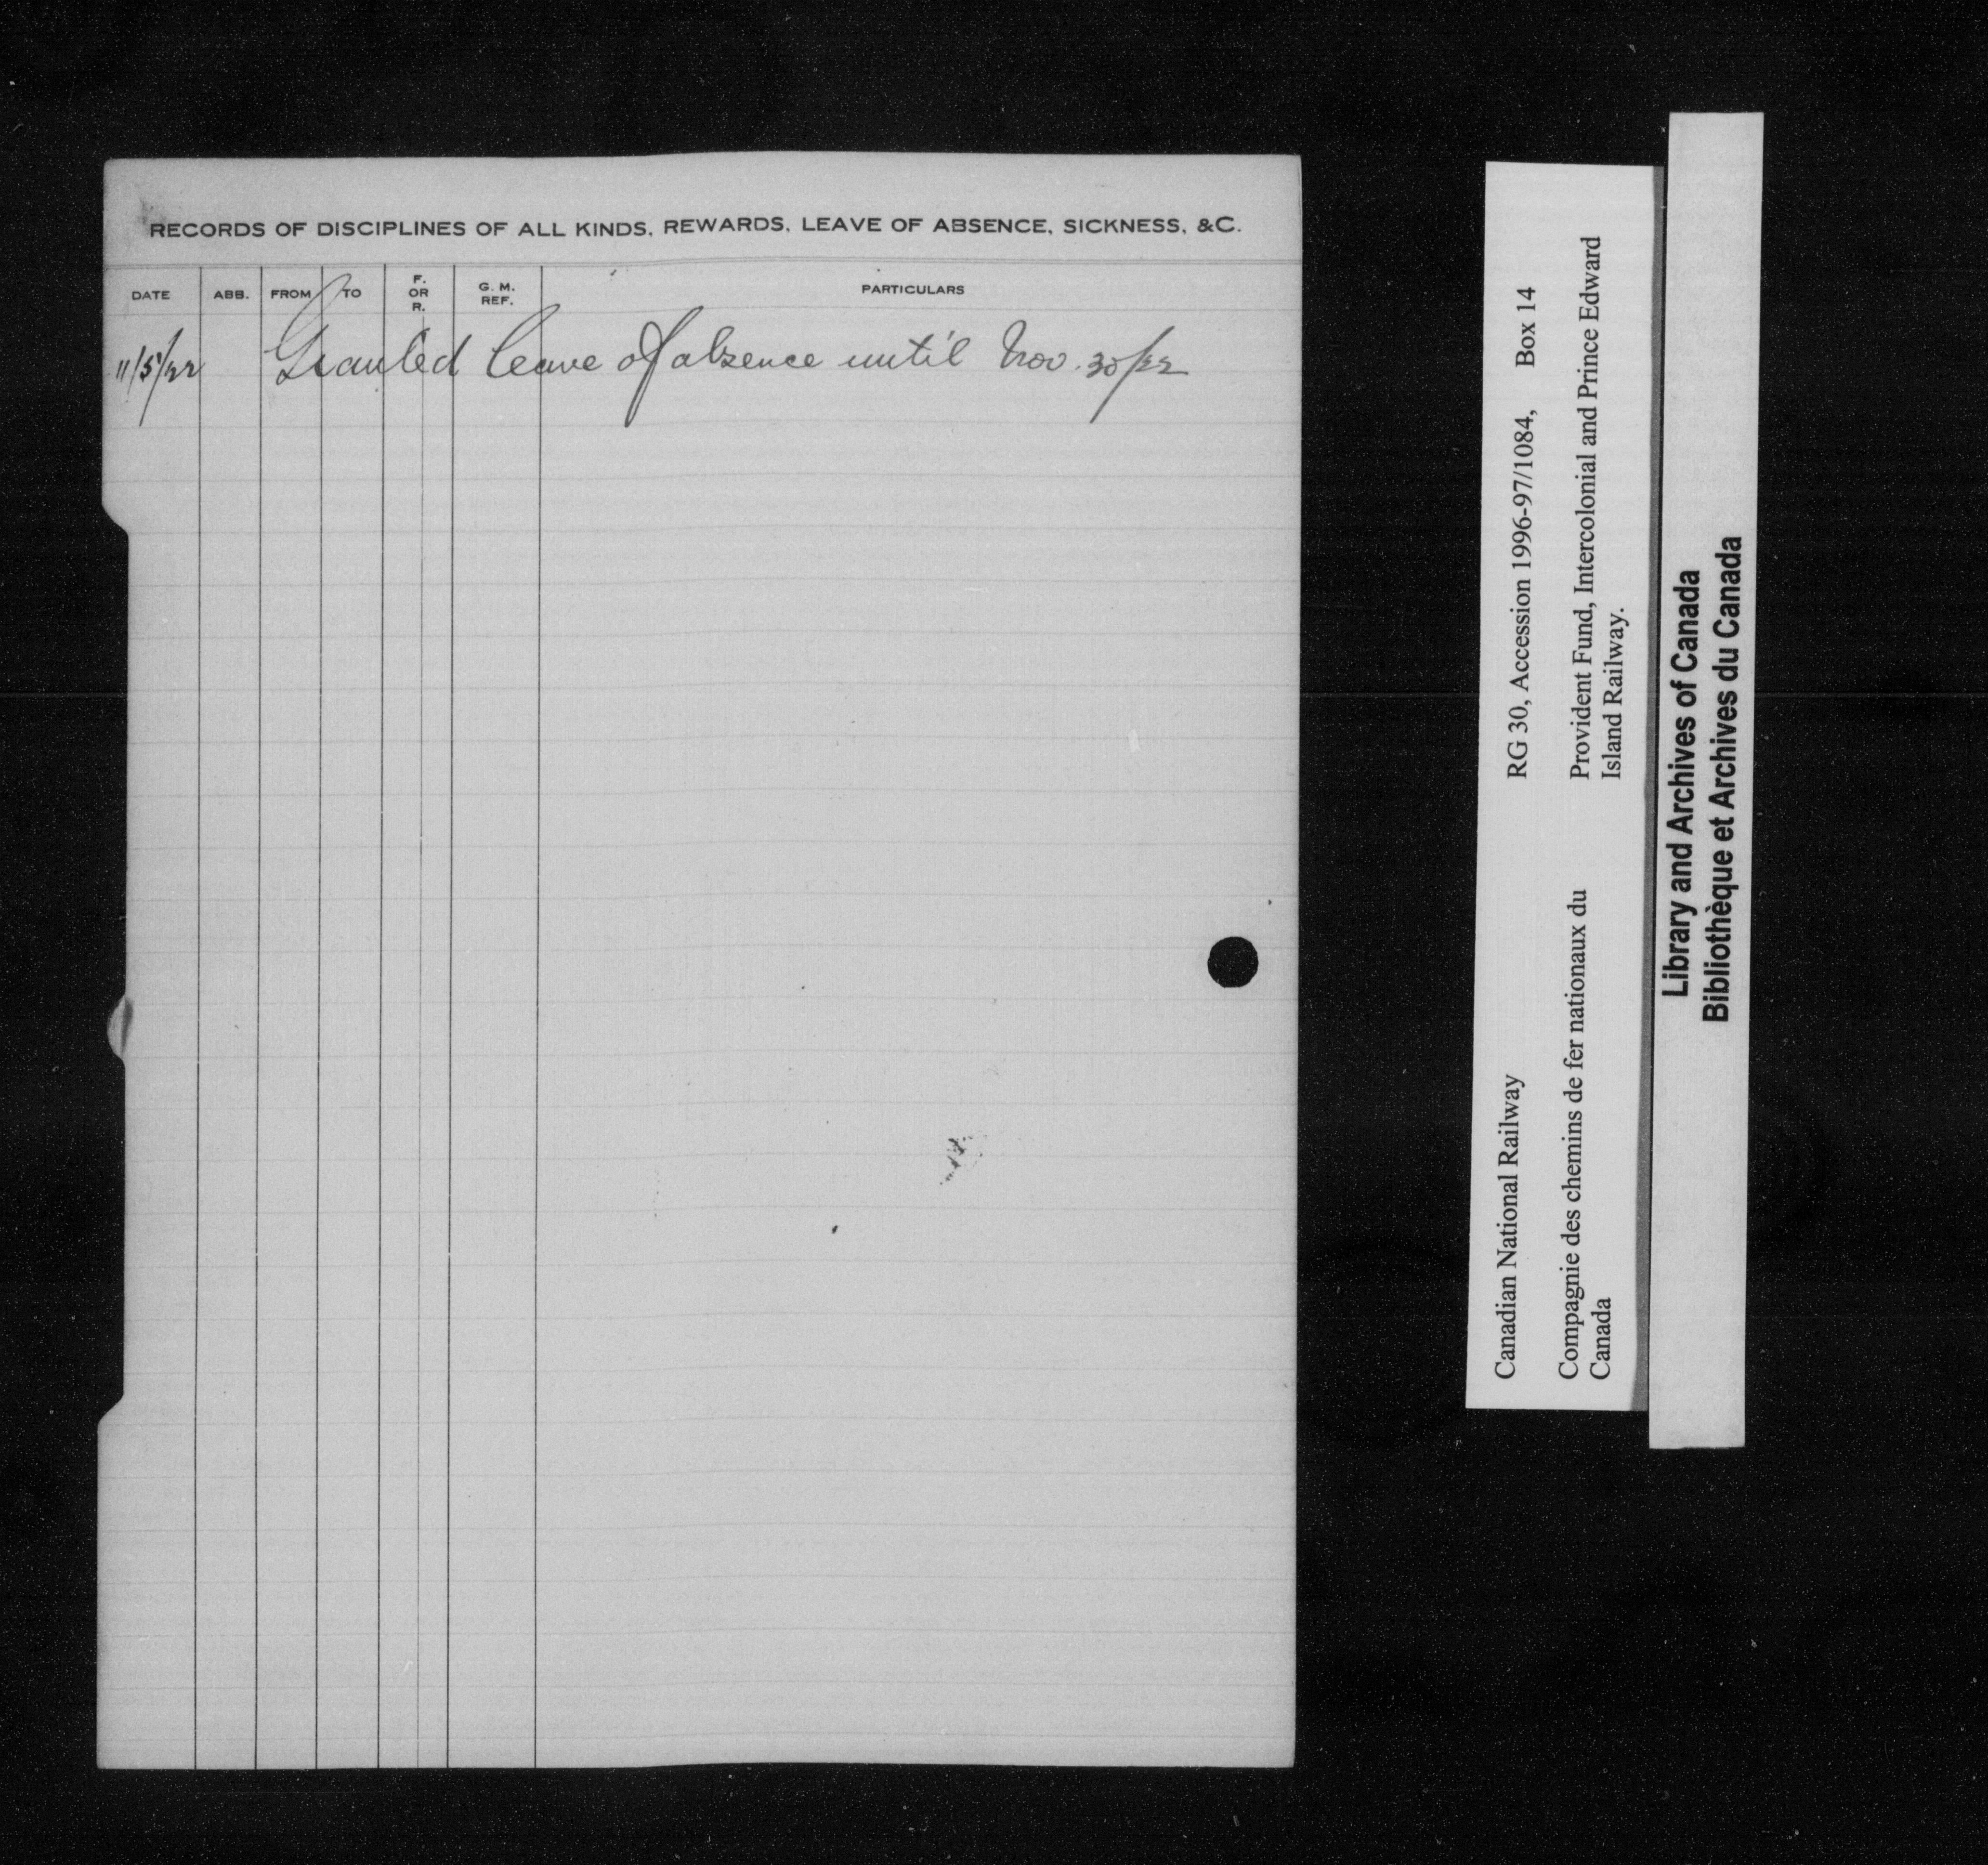 RECORDS OF DISCIPLINES OF ALL KINDS, REWARDS, LEAVE OF ABSENCE, SICKNESS, &C.
DATE ABB. FROM TO F. OR R. G. M. REF. PARTICULARS
11/5/22 Granted leave of absence until Nov. 30/22
Canadian National Railway RG 30, Accession 1996-97/1084, Box 14
Compagnie des chemins de fer nationaux du Provident Fund, Intercolonial and Prince Edward
Canada Island Railway.
Library and Archives of Canada
Bibliothèque et Archives du Canada